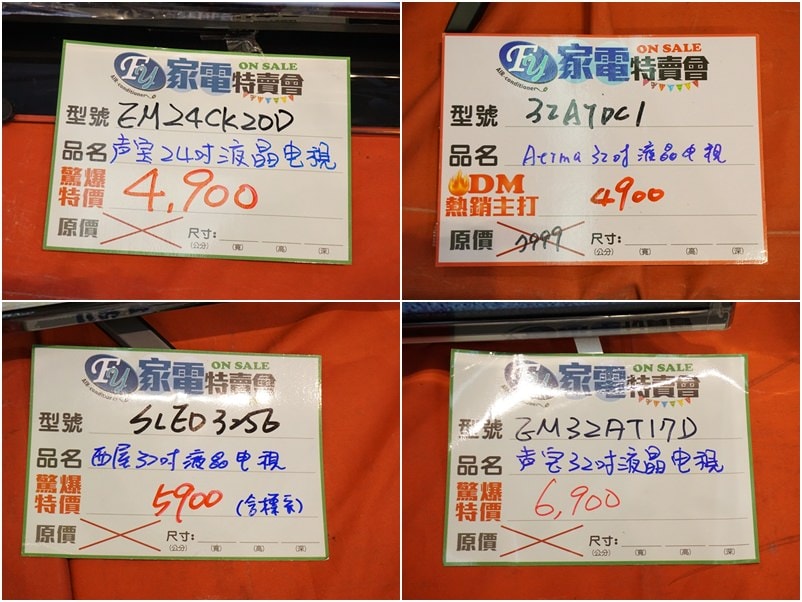 FU 家電特賣會 ON SALE
AIR-conditioner
型號 EM24CK20D
品名 声宝24吋液晶电視
驚爆特價 4,900
原價 尺寸:
(公分) (寬) (高) (深)
FU 家電特賣會 ON SALE
AIR-conditioner
型號 32A7DC1
品名 Aerma 32吋液晶电視
DM熱銷主打 4900
原價 7999 尺寸:
(公分) (寬) (高) (深)
FU 家電特賣會 ON SALE
AIR-conditioner
型號 SLED3256
品名 西屋32吋液晶电視
驚爆特價 5900 (含標示)
原價 尺寸:
(公分) (寬) (高) (深)
FU 家電特賣會 ON SALE
型號 EM32AT17D
品名 声宝32吋液晶电視
驚爆特價 6,900
原價 尺寸:
(公分) (寬) (高) (深)